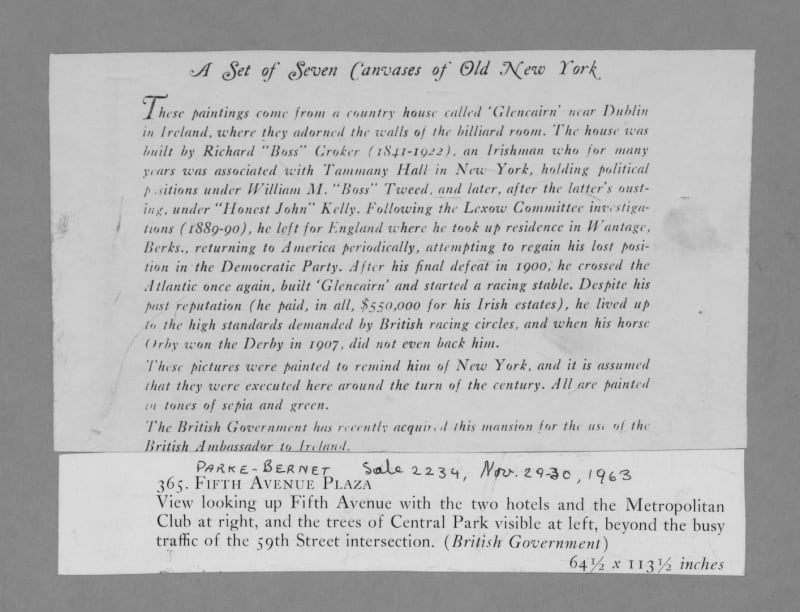 A Set of Seven Canvases of Old New York
These paintings come from a country house called 'Glencairn' near Dublin
in Ireland, where they adorned the walls of the billiard room. The house was
built by Richard "Boss" Croker (1841-1922), an Irishman who for many
years was associated with Tammany Hall in New York, holding political
positions under William M. "Boss" Tweed, and later, after the latter's oust-
ing, under "Honest John" Kelly. Following the Lexow Committee investiga-
tions (1889-90), he left for England where he took up residence in Wantage,
Berks., returning to America periodically, attempting to regain his lost posi-
tion in the Democratic Party. After his final defeat in 1900, he crossed the
Atlantic once again, built 'Glencairn' and started a racing stable. Despite his
past reputation (he paid, in all, $550,000 for his Irish estates), he lived up
to the high standards demanded by British racing circles, and when his horse
Orby won the Derby in 1907, did not even back him.
These pictures were painted to remind him of New York, and it is assumed
that they were executed here around the turn of the century. All are painted
in tones of sepia and green.
The British Government has recently acquired this mansion for the use of the
British Ambassador to Ireland.
PARKE-BERNET Sale 2234, Nov. 29-30, 1963
365. FIFTH AVENUE PLAZA
View looking up Fifth Avenue with the two hotels and the Metropolitan
Club at right, and the trees of Central Park visible at left, beyond the busy
traffic of the 59th Street intersection. (British Government)
64½ x 113½ inches